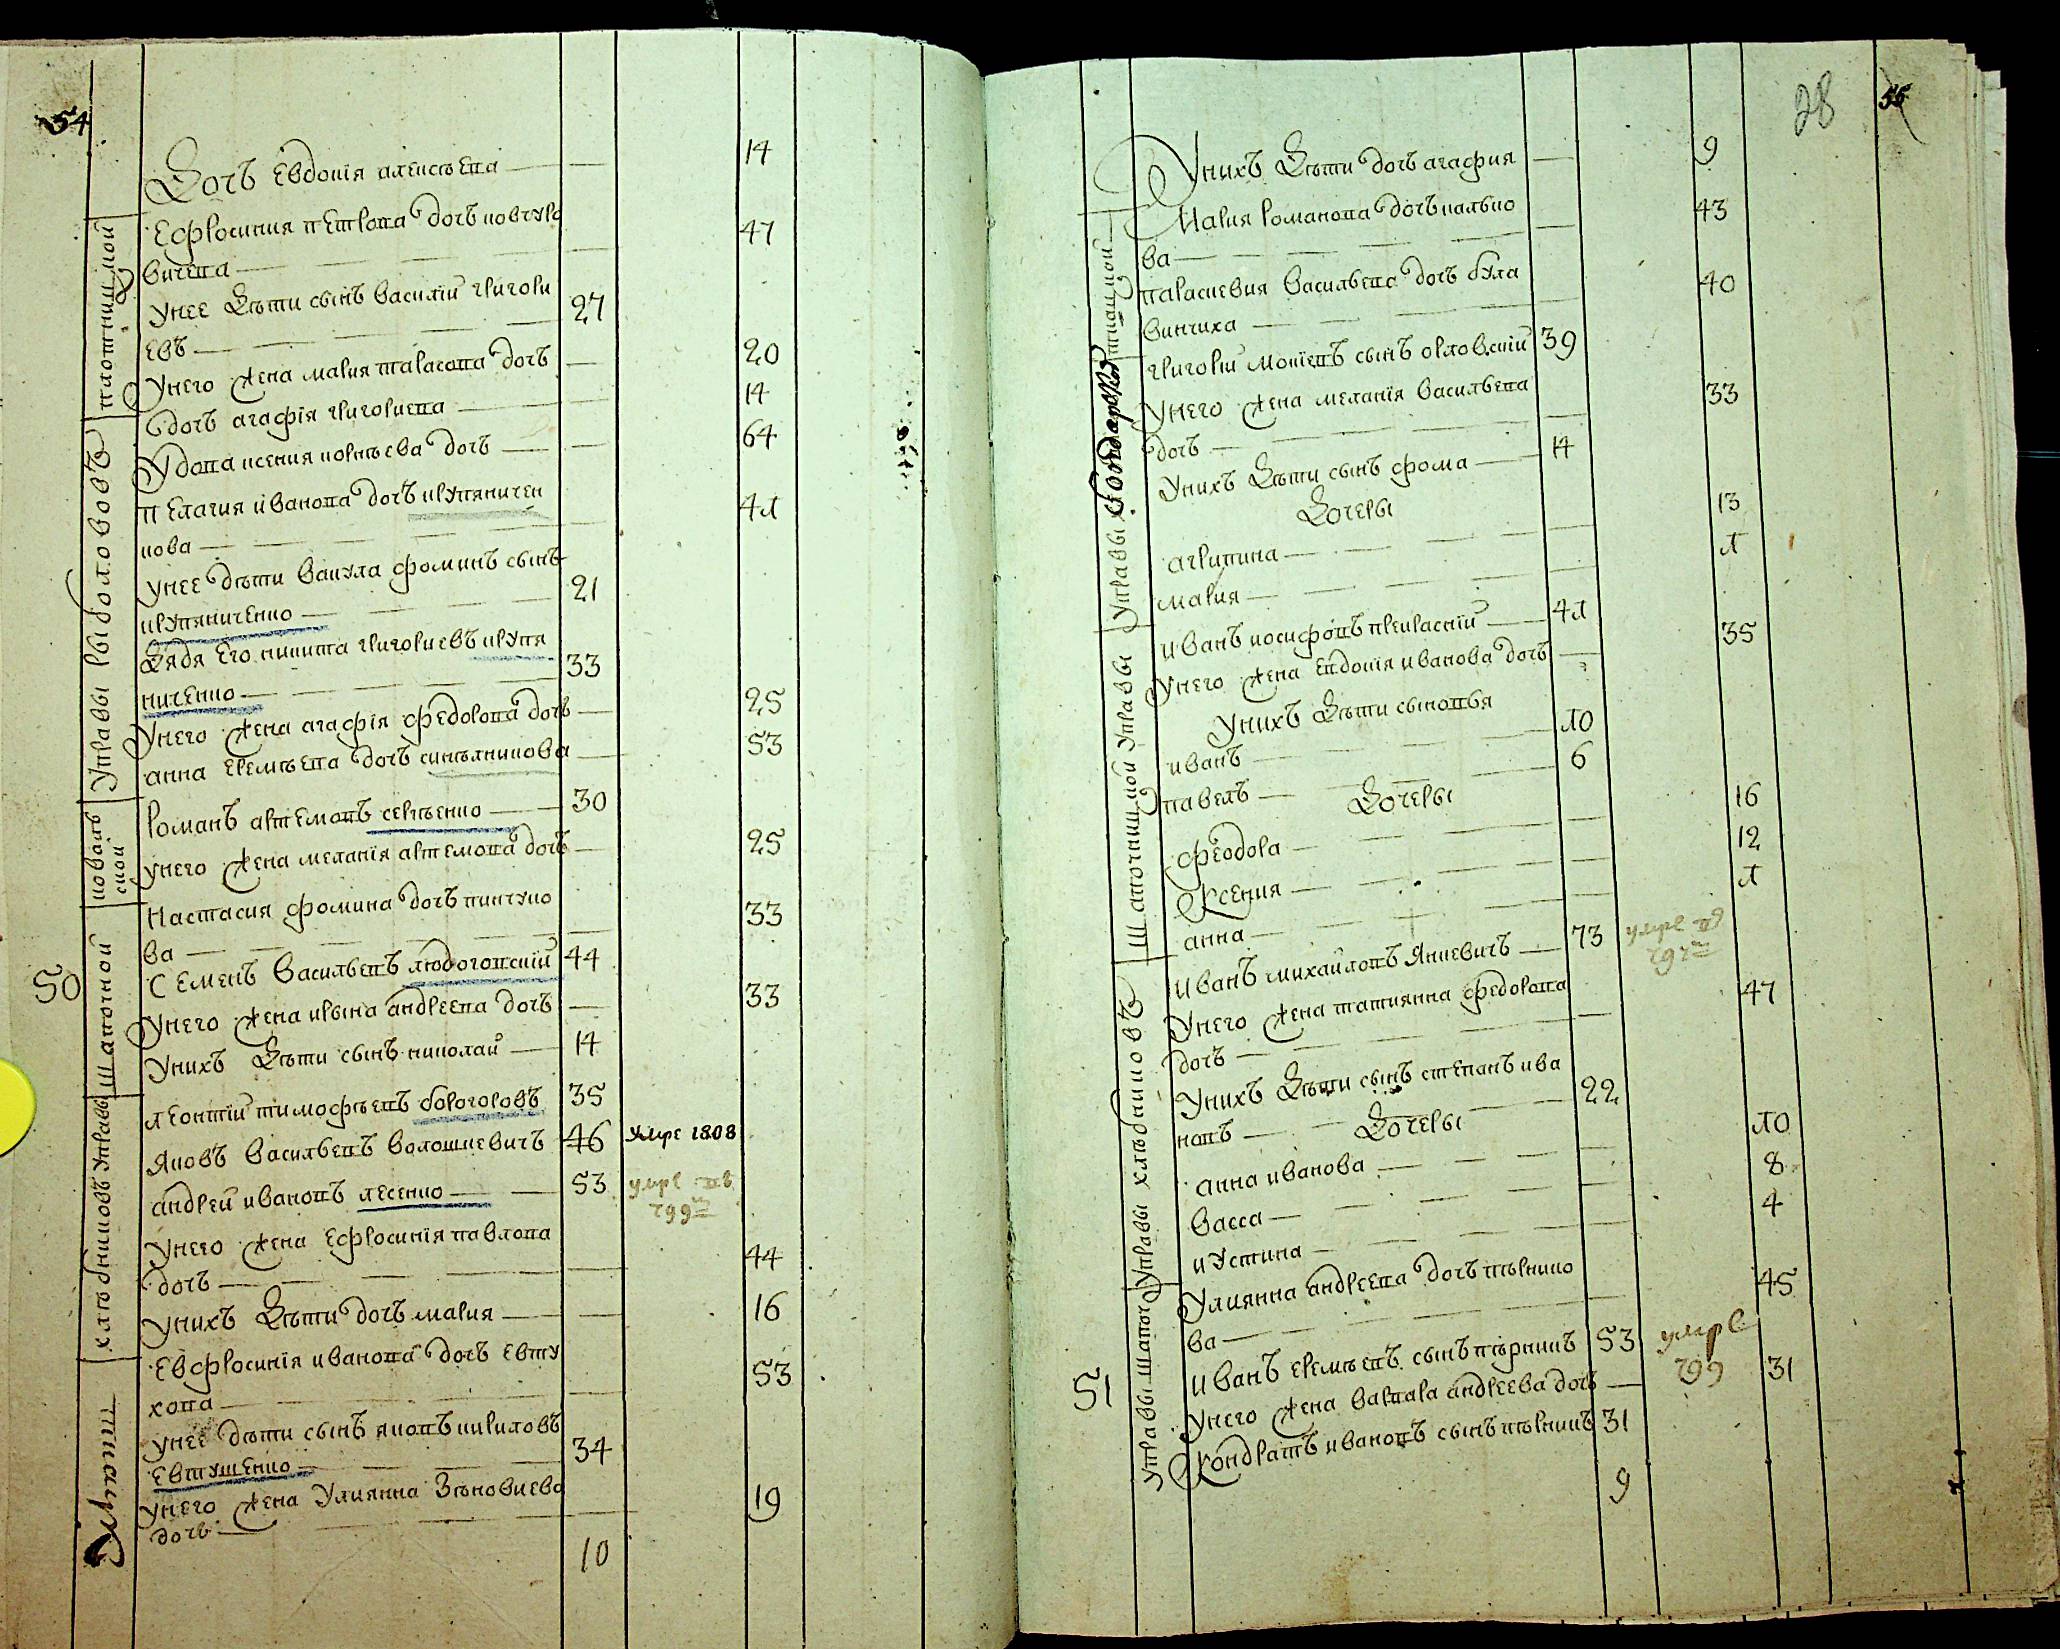 54
Дочь Евдокія алексѣева — 14
Ефросиния петрова дочь ковчуко
вичева — 47
Унее дѣти сынъ василій григори
евъ — 27
Унего жена мария тарасова дочь — 20
дочь агафія григориева — 14
Удова ксения корнѣева дочь — 64
пелагия иванова дочь крупяничен
кова — 41
унее дѣти вакула фоминъ сынъ
крупяниченко — 21
дядя его никита григориевъ крупя
ниченко — 33
Унего жена агафія федорова дочь — 25
анна еремѣева дочь синѣлникова — 53
романъ артемовъ сергѣенко — 30
унего жена меланія артемова дочь — 25
Настасия фомина дочь пинчуко
ва — 33
50
Семенъ васильевъ любоговскій 44
Унего жена ирына андреева дочь — 33
Унихъ дѣти сынъ николай — 14
леонтій тимофѣевъ богоговъ 35
Яковъ васильевъ волошкевичъ 46 умре 1808
андрей ивановъ лесенко — 53 умре въ
799м
Унего жена ефросинія павлова
дочь — 44
Унихъ дѣти дочь мария — 16
Евфросинія иванова дочь евту
хова — 53
Унее дѣти сынъ яковъ кириловъ
евтушенко — 34
Унего жена Улиянна Зѣновиева
дочь — 19
10
плотницкой
Управы рыболововъ
коваль
ской
шапочной
хлѣбниковъ управы
28
55
Унихъ дѣти дочь агафия — 9
Мария романова дочь калько
ва — 43
параскевия васильева дочь була
винчиха — 40
григорій мокіевъ сынъ орловскій 39
Унего жена меланія васильева
дочь — 33
Унихъ дѣти сынъ фома — 14
Дочеры
агрипина — 13
мария — 1
иванъ иосифовъ прекраскій — 41
Унего жена евдокія иванова дочь — 35
Унихъ дѣти сыновья
иванъ — 10
павелъ — 6
Дочеры
феодора — 16
Ксения — 12
анна — 1
Иванъ михайловъ Янкевичъ — 73 умре въ
797м
Унего жена татиянна федорова
дочь — 47
Унихъ дѣти сынъ степанъ ива
новъ — 22
Дочеры
анна иванова — 10
васса — 8
иустина — 4
Улиянна андреева дочь пѣрнико
ва — 45
51
Иванъ еремѣевъ сынъ пѣрникъ 53 умре
799
Унего жена варвара андреева дочь — 31
Кондратъ ивановъ сынъ пѣрникъ 31
9
Управы бондарской
Шапошницкой управы
Управы хлѣбниковъ
Управы шапоч